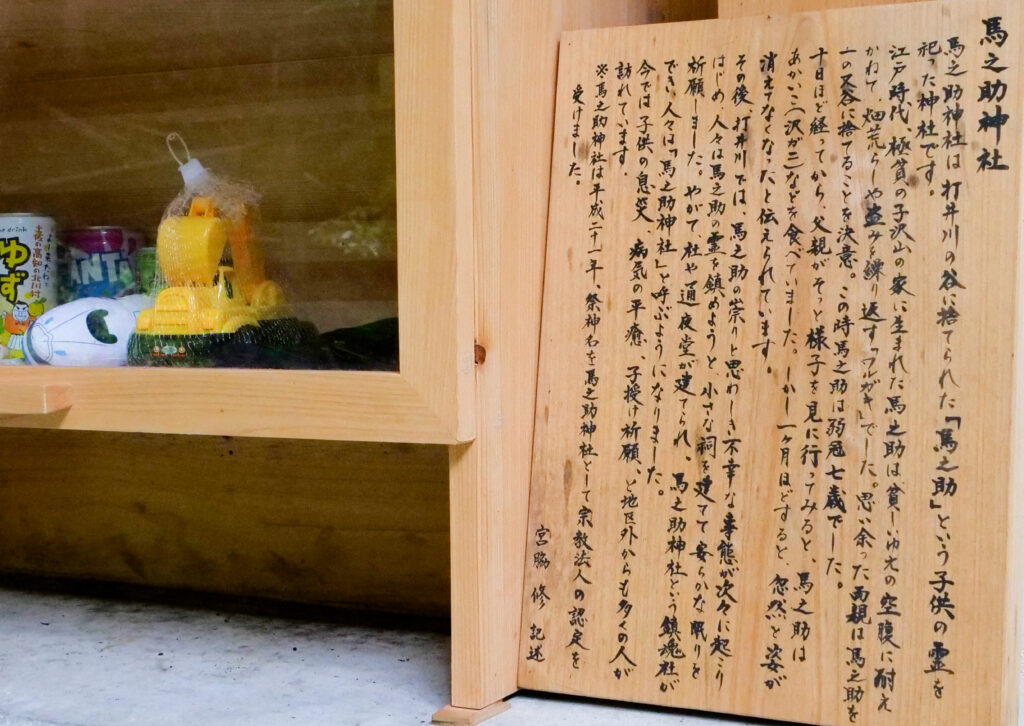 馬之助神社
馬之助神社は打井川の谷に捨てられた「馬之助」という子供の霊を
祀った神社です。
江戸時代、極貧の子沢山の家に生まれた馬之助は、貧しいゆえの空腹に耐え
かねて、畑荒らしや盗みを繰り返す「ワルガキ」でした。思い余った両親は馬之助を
一の又谷に捨てることを決意。この時馬之助は弱冠七歳でした。
十日ほど経ってから、父親がそっと様子を見に行ってみると、馬之助は
あかいこ(沢ガニ)などを食べていました。しかし一ヶ月ほどすると、忽然と姿が
消えてなくなったと伝えられています。
その後、打井川では、馬之助の祟りと思わしき不幸な事態が次々に起こり
はじめ、人々は馬之助の霊を鎮めようと、小さな祠を建てて安らかな眠りを
祈願しました。やがて、社や通夜堂が建てられ、馬之助神社という鎮魂社が
でき、人々は「馬之助神社」と呼ぶようになりました。
今では子供の息災、病気の平癒、子授け祈願、と地区外からも多くの人が
訪れています。
※馬之助神社は平成二十一年、祭神名を馬之助神社として宗教法人の認定を
受けました。
宮脇 修 記述
drink
ゆず
土佐の高知の北川村
FANTA